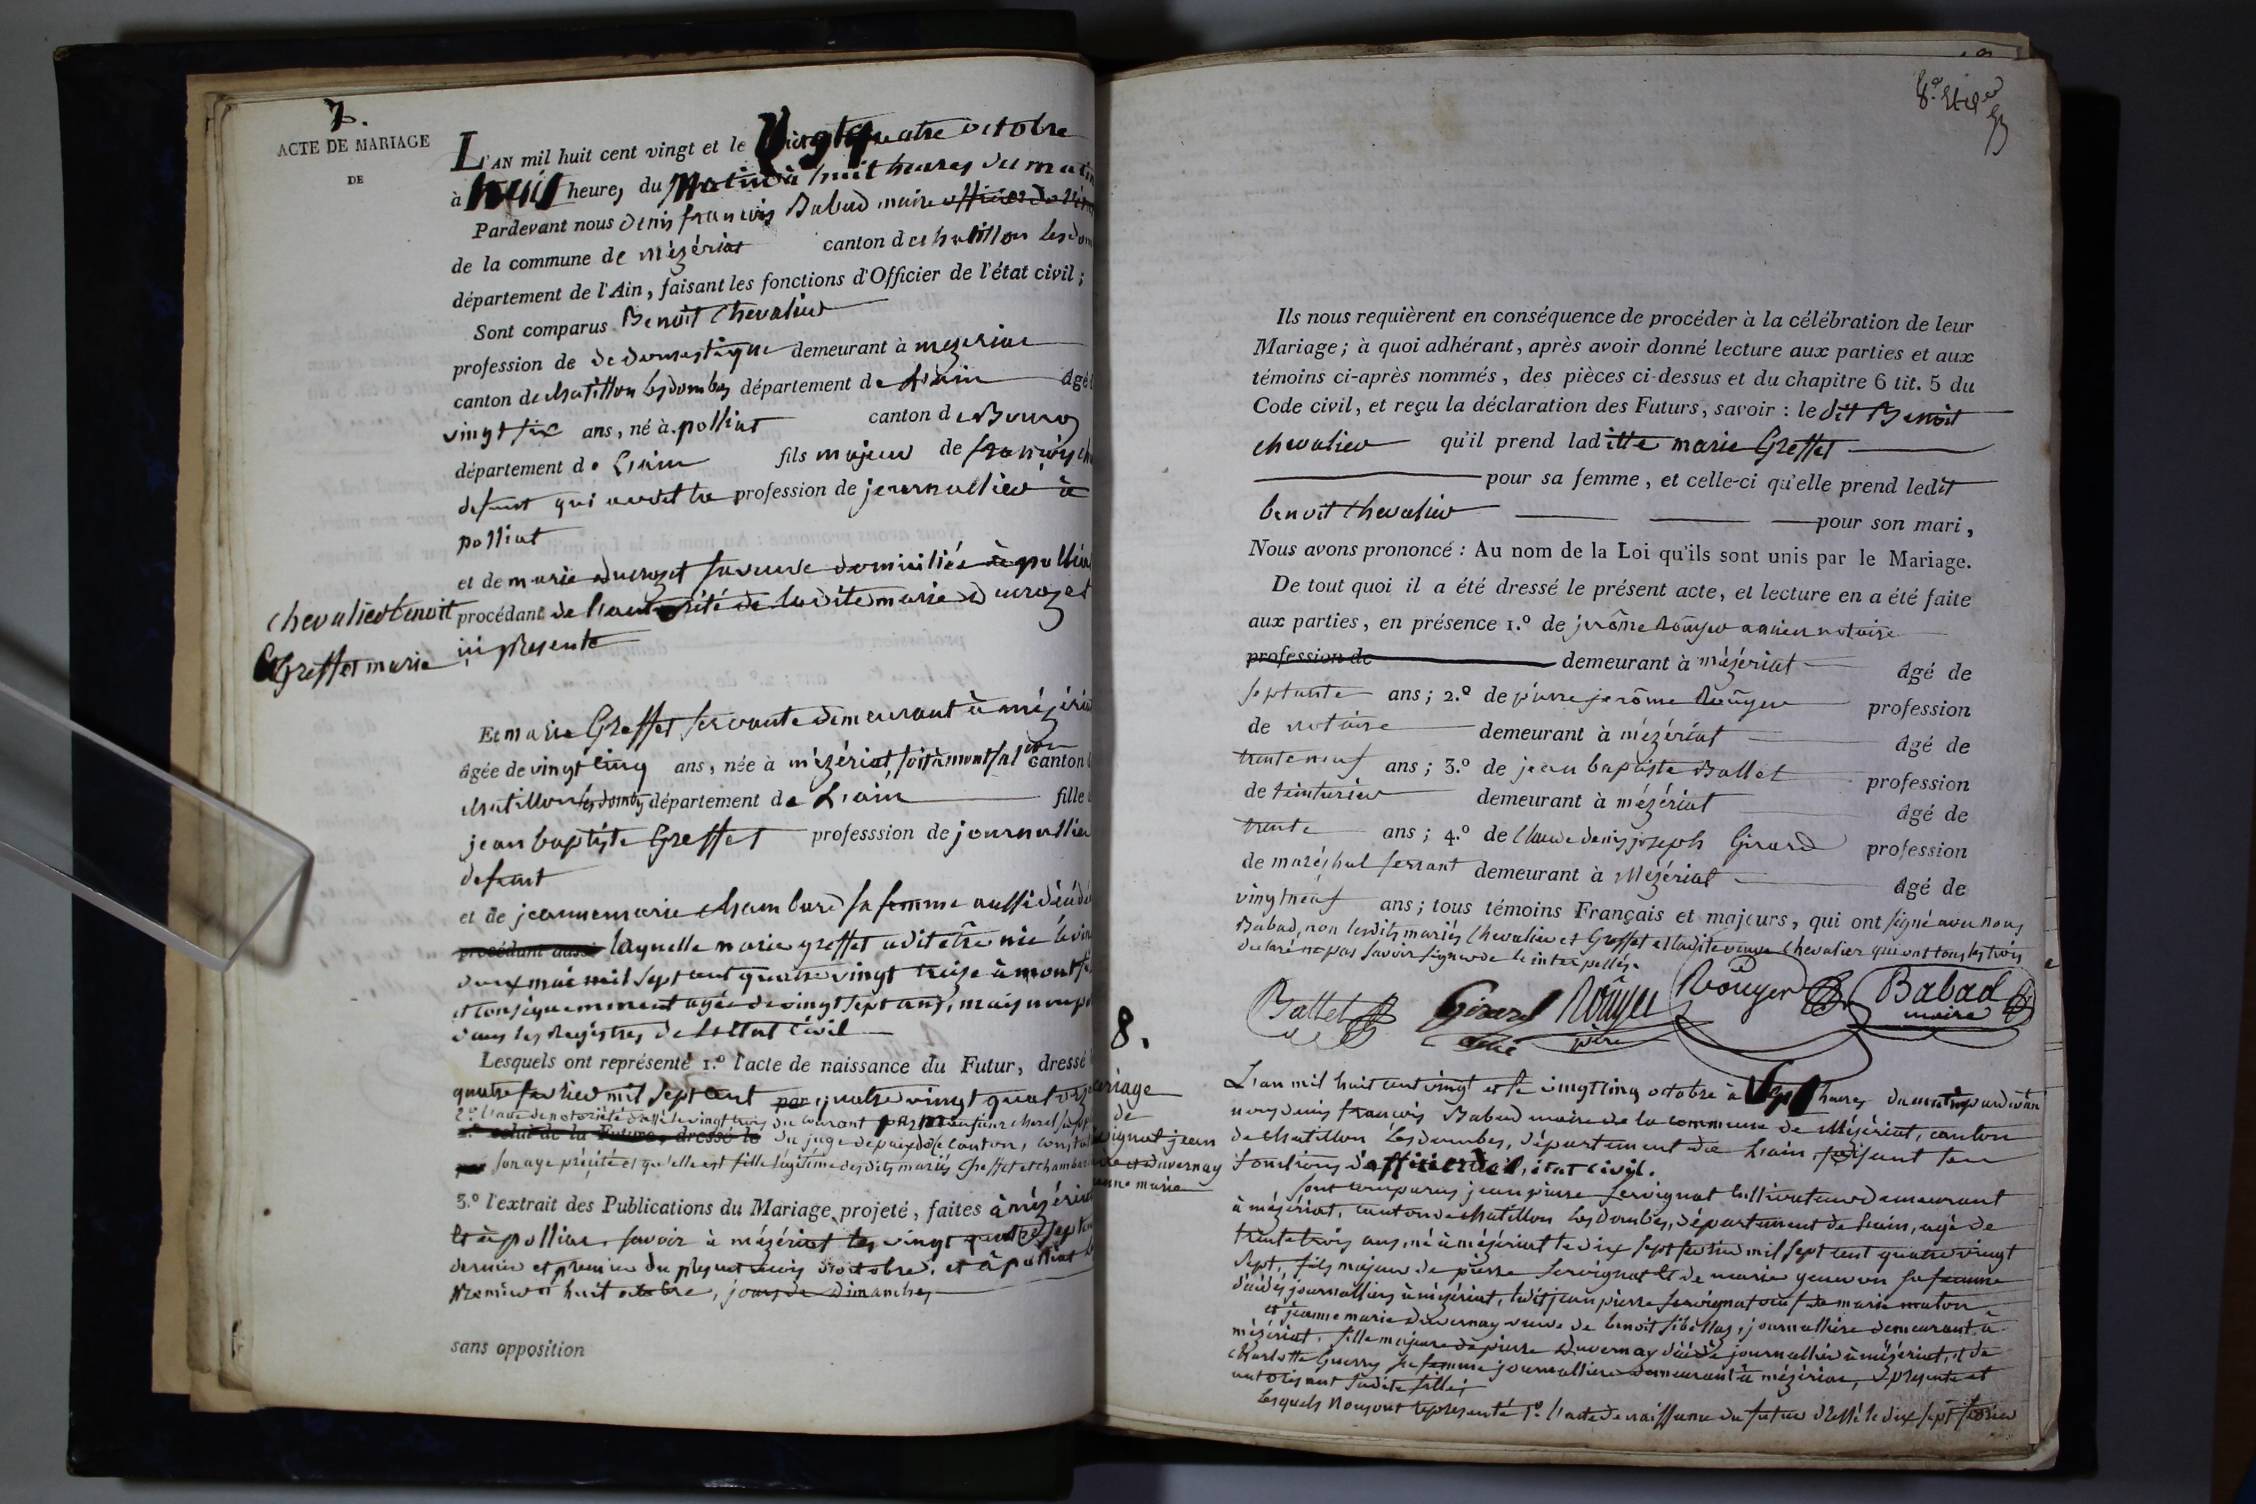 7.
ACTE DE MARIAGE
DE
chevalier benoit
Et Greffet marie
L'AN mil huit cent vingt et le Vingtquatre octobre
à huit heures du Matin à huit heures du matin
Pardevant nous denis françois Babad maire officier de l'état
de la commune de mézériat canton de chatillon les dom
département de l'Ain, faisant les fonctions d'Officier de l'état civil ;
Sont comparus Benoit Chevalier
profession de de domestique demeurant à mezeriat
canton de chatillon les dombes département de L'ain âgé
vingt six ans, né à polliat canton de Bourg
département de L'ain fils majeur de françois che
defunt qui avoit la profession de journallier à
polliat
et de marie ducrozet sa veuve domiciliée à pollia
procédant de l'autorité de ladite marie Ducrozet
ici presente
Et marie Greffet servante demeurant à mézéria
âgée de vingt cinq ans, née à mézériat soit à montfalcon canton
chatillon les dombes département de L'ain fille
jean baptiste Greffet professsion de journallier
defunt
et de jeanne marie chambard sa femme aussi décédé
procédant aussi laquelle marie greffet a dit être née le vin
deux mai mil sept cent quatre vingt treize à montf
et conséquemment agée de vingt sept ans, mais
dans les Registres de L'état Civil
Lesquels ont représenté 1.º l'acte de naissance du Futur, dressé
quatre fevrier mil sept cent par quatre vingt quatorze
2.º l'acte de notoriété dressé le vingt trois du courant par
2.º celui de la Future, dressé le du juge de paix de ce canton, const
par son age précité et qu'elle est fille légitime desdits mariés Greffet et chambar
3.º l'extrait des Publications du Mariage projeté, faites à mézéria
Et à polliat. savoir à mézériat les vingt quatre septem
dernier et premier du présent mois d'octobre, et à polliat
premier et huit octobre, jours de dimanches
sans opposition
8.e
Ils nous requièrent en conséquence de procéder à la célébration de leur
Mariage ; à quoi adhérant, après avoir donné lecture aux parties et aux
témoins ci-après nommés, des pièces ci-dessus et du chapitre 6 tit. 5 du
Code civil, et reçu la déclaration des Futurs, savoir : le dit Benoit
chevalier qu'il prend laditte marie Greffet
pour sa femme, et celle-ci qu'elle prend ledit
benoit chevalier pour son mari,
Nous avons prononcé : Au nom de la Loi qu'ils sont unis par le Mariage.
De tout quoi il a été dressé le présent acte, et lecture en a été faite
aux parties, en présence 1.º de jerôme Roûyer ancien notaire
profession de demeurant à mézériat âgé de
septante ans ; 2.º de pierre jerôme Roûyer profession
de notaire demeurant à mézériat âgé de
trente neuf ans ; 3.º de jean baptiste Ballet profession
de teinturier demeurant à mézériat âgé de
trente ans ; 4.º de Claude denis joseph Girard profession
de maréchal ferrant demeurant à Mézériat âgé de
vingt neuf ans ; tous témoins Français et majeurs, qui ont signé avec nous
Babad, non lesdits mariés Chevalier et Greffet et ladite veuve Chevalier qui ont tous les trois
declaré ne pas savoir signer de ce interpellés.
Ballet Girard Roûyer père Roûyer Babad maire
8.
ariage
de
ervignat jean
duvernay
anne marie
L'an mil huit cent vingt et le vingt cinq octobre à Sept heures du matin pardevant
nous denis françois Babad maire de la commune de Mézériat, canton
de chatillon les dombes, département de L'ain, faisant les
fonctions d'officier de l'état civil.
Sont comparus jean pierre servignat cultivateur demeurant
à mézériat, canton de chatillon les dombes, département de L'ain, agé de
trente trois ans, né à mézériat le dix sept fevrier mil sept cent quatre vingt
sept, fils majeur de pierre servignat et de marie sa femme
décédés journalliers à mézériat, ledit jean pierre servignat veuf de marie
et jeanne marie duvernay veuve de benoit, journallière demeurant à
mézériat, fille majeure de pierre Duvernay décédé journallier à mézériat, et de
Charlotte Guerry sa femme journallière demeurant à mézériat, presente et
autorisant sadite fille;
Lesquels nous ont représenté 1.º l'acte de naissance du futur dressé le dix sept fevrier